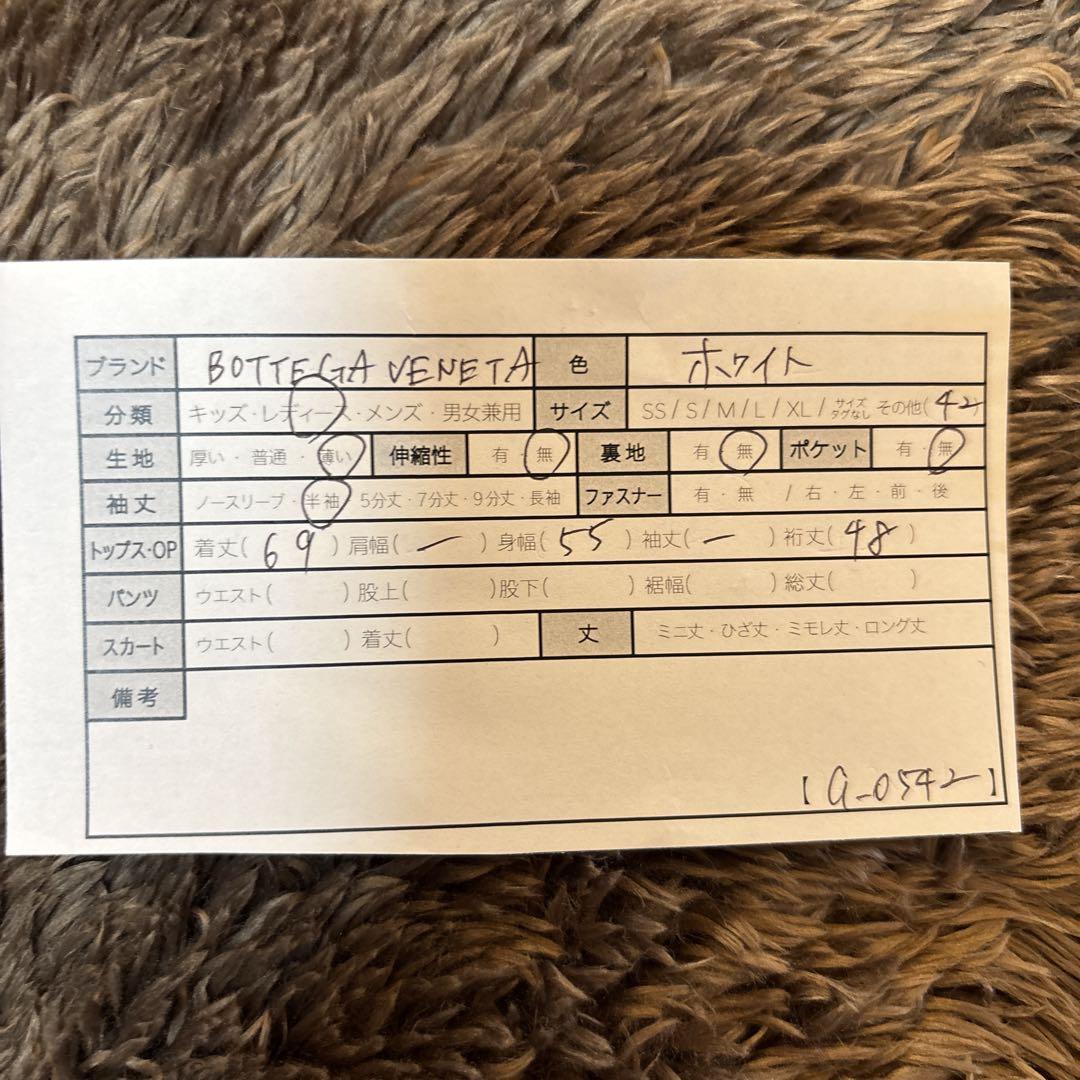 ブランド BOTTEGA VENETA 色 ホワイト
分類 キッズ・レディース・メンズ・男女兼用 サイズ SS / S / M / L / XL / サイズタグなし その他(42)
生地 厚い・普通・薄い 伸縮性 有・無 裏地 有・無 ポケット 有・無
袖丈 ノースリーブ・半袖・5分丈・7分丈・9分丈・長袖 ファスナー 有・無 / 右・左・前・後
トップス・OP 着丈(69) 肩幅(ー) 身幅(55) 袖丈(ー) 裄丈(48)
パンツ ウエスト( ) 股上( ) 股下( ) 裾幅( ) 総丈( )
スカート ウエスト( ) 着丈( ) 丈 ミニ丈・ひざ丈・ミモレ丈・ロング丈
備考
【a-0542】